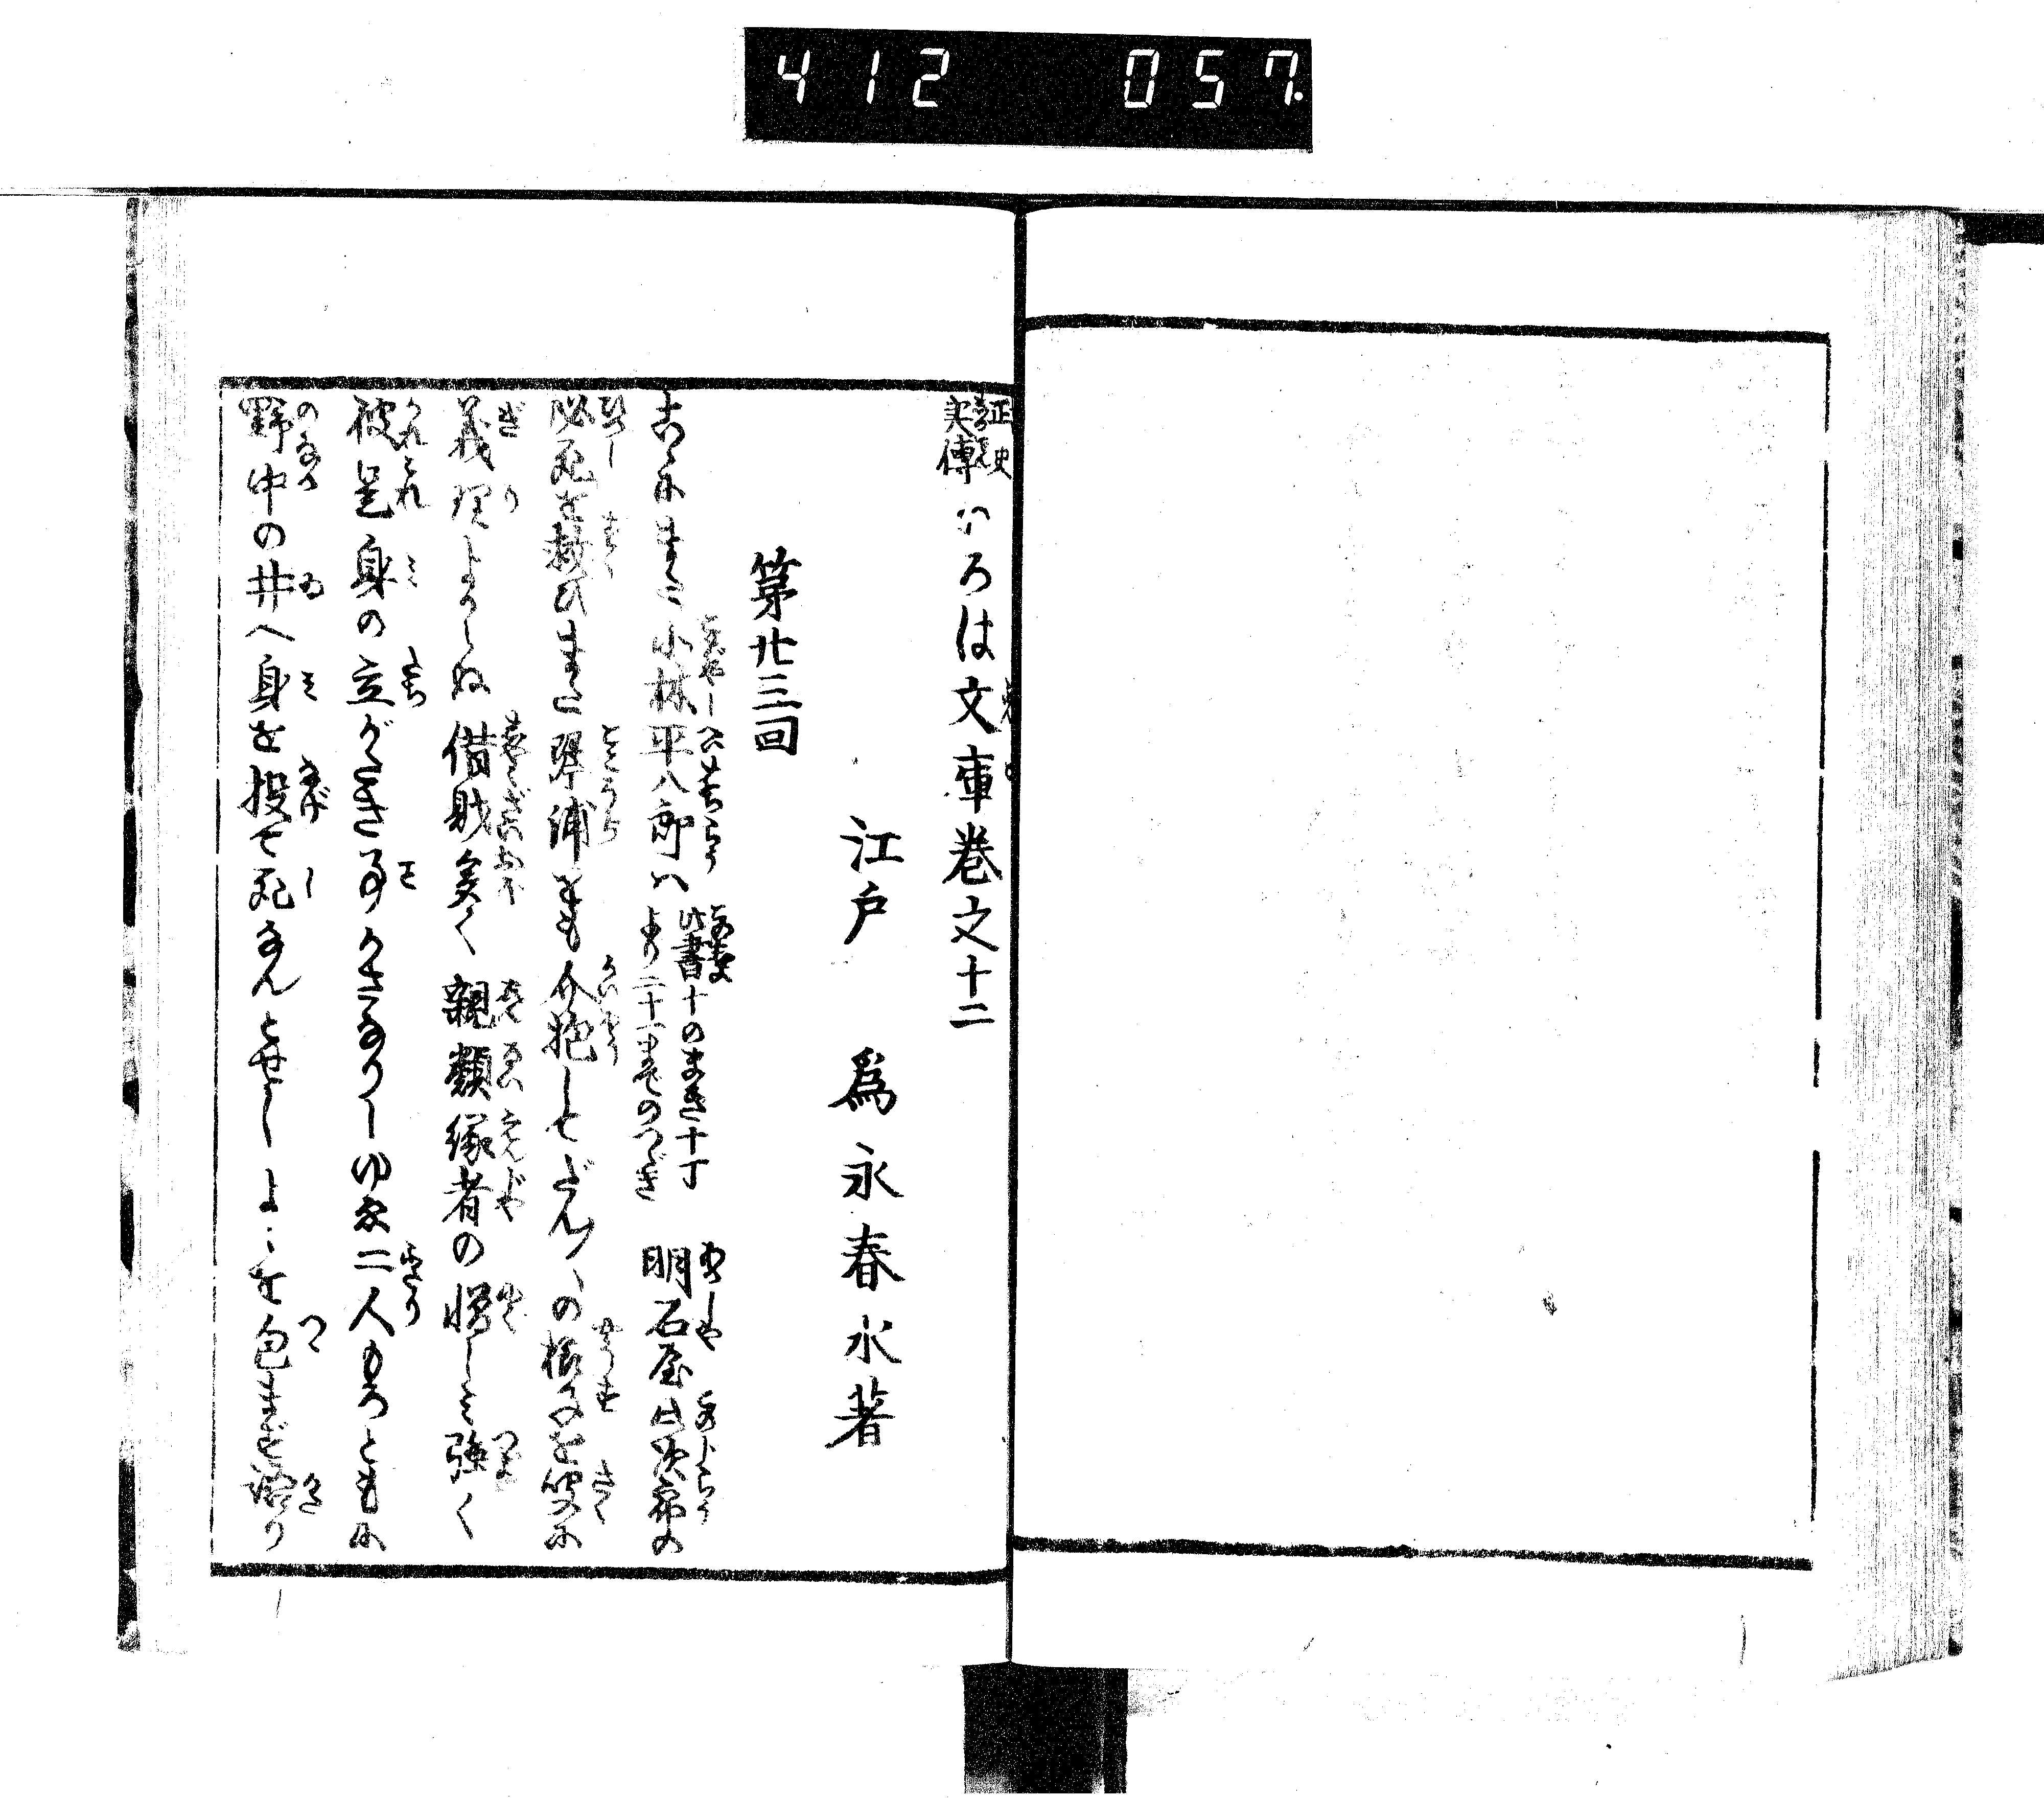 412 057.
正史
実傳
いろは文庫巻之十二
江戸 爲永春水著
第廿三回
こゝにまた小林平八郎ハ此書十のまき十丁
より二十一丁までのつゞき
明石屋此次郎の
必死を救ひまた琴浦をも介抱してだん〳〵の様子を聞に
義理よからぬ借財多く親類縁者の憎しみ強く
彼是身の立がたき事かさなりしゆゑ二人もろともに
野中の井へ身を投て死なんとせしよしを包まず語り